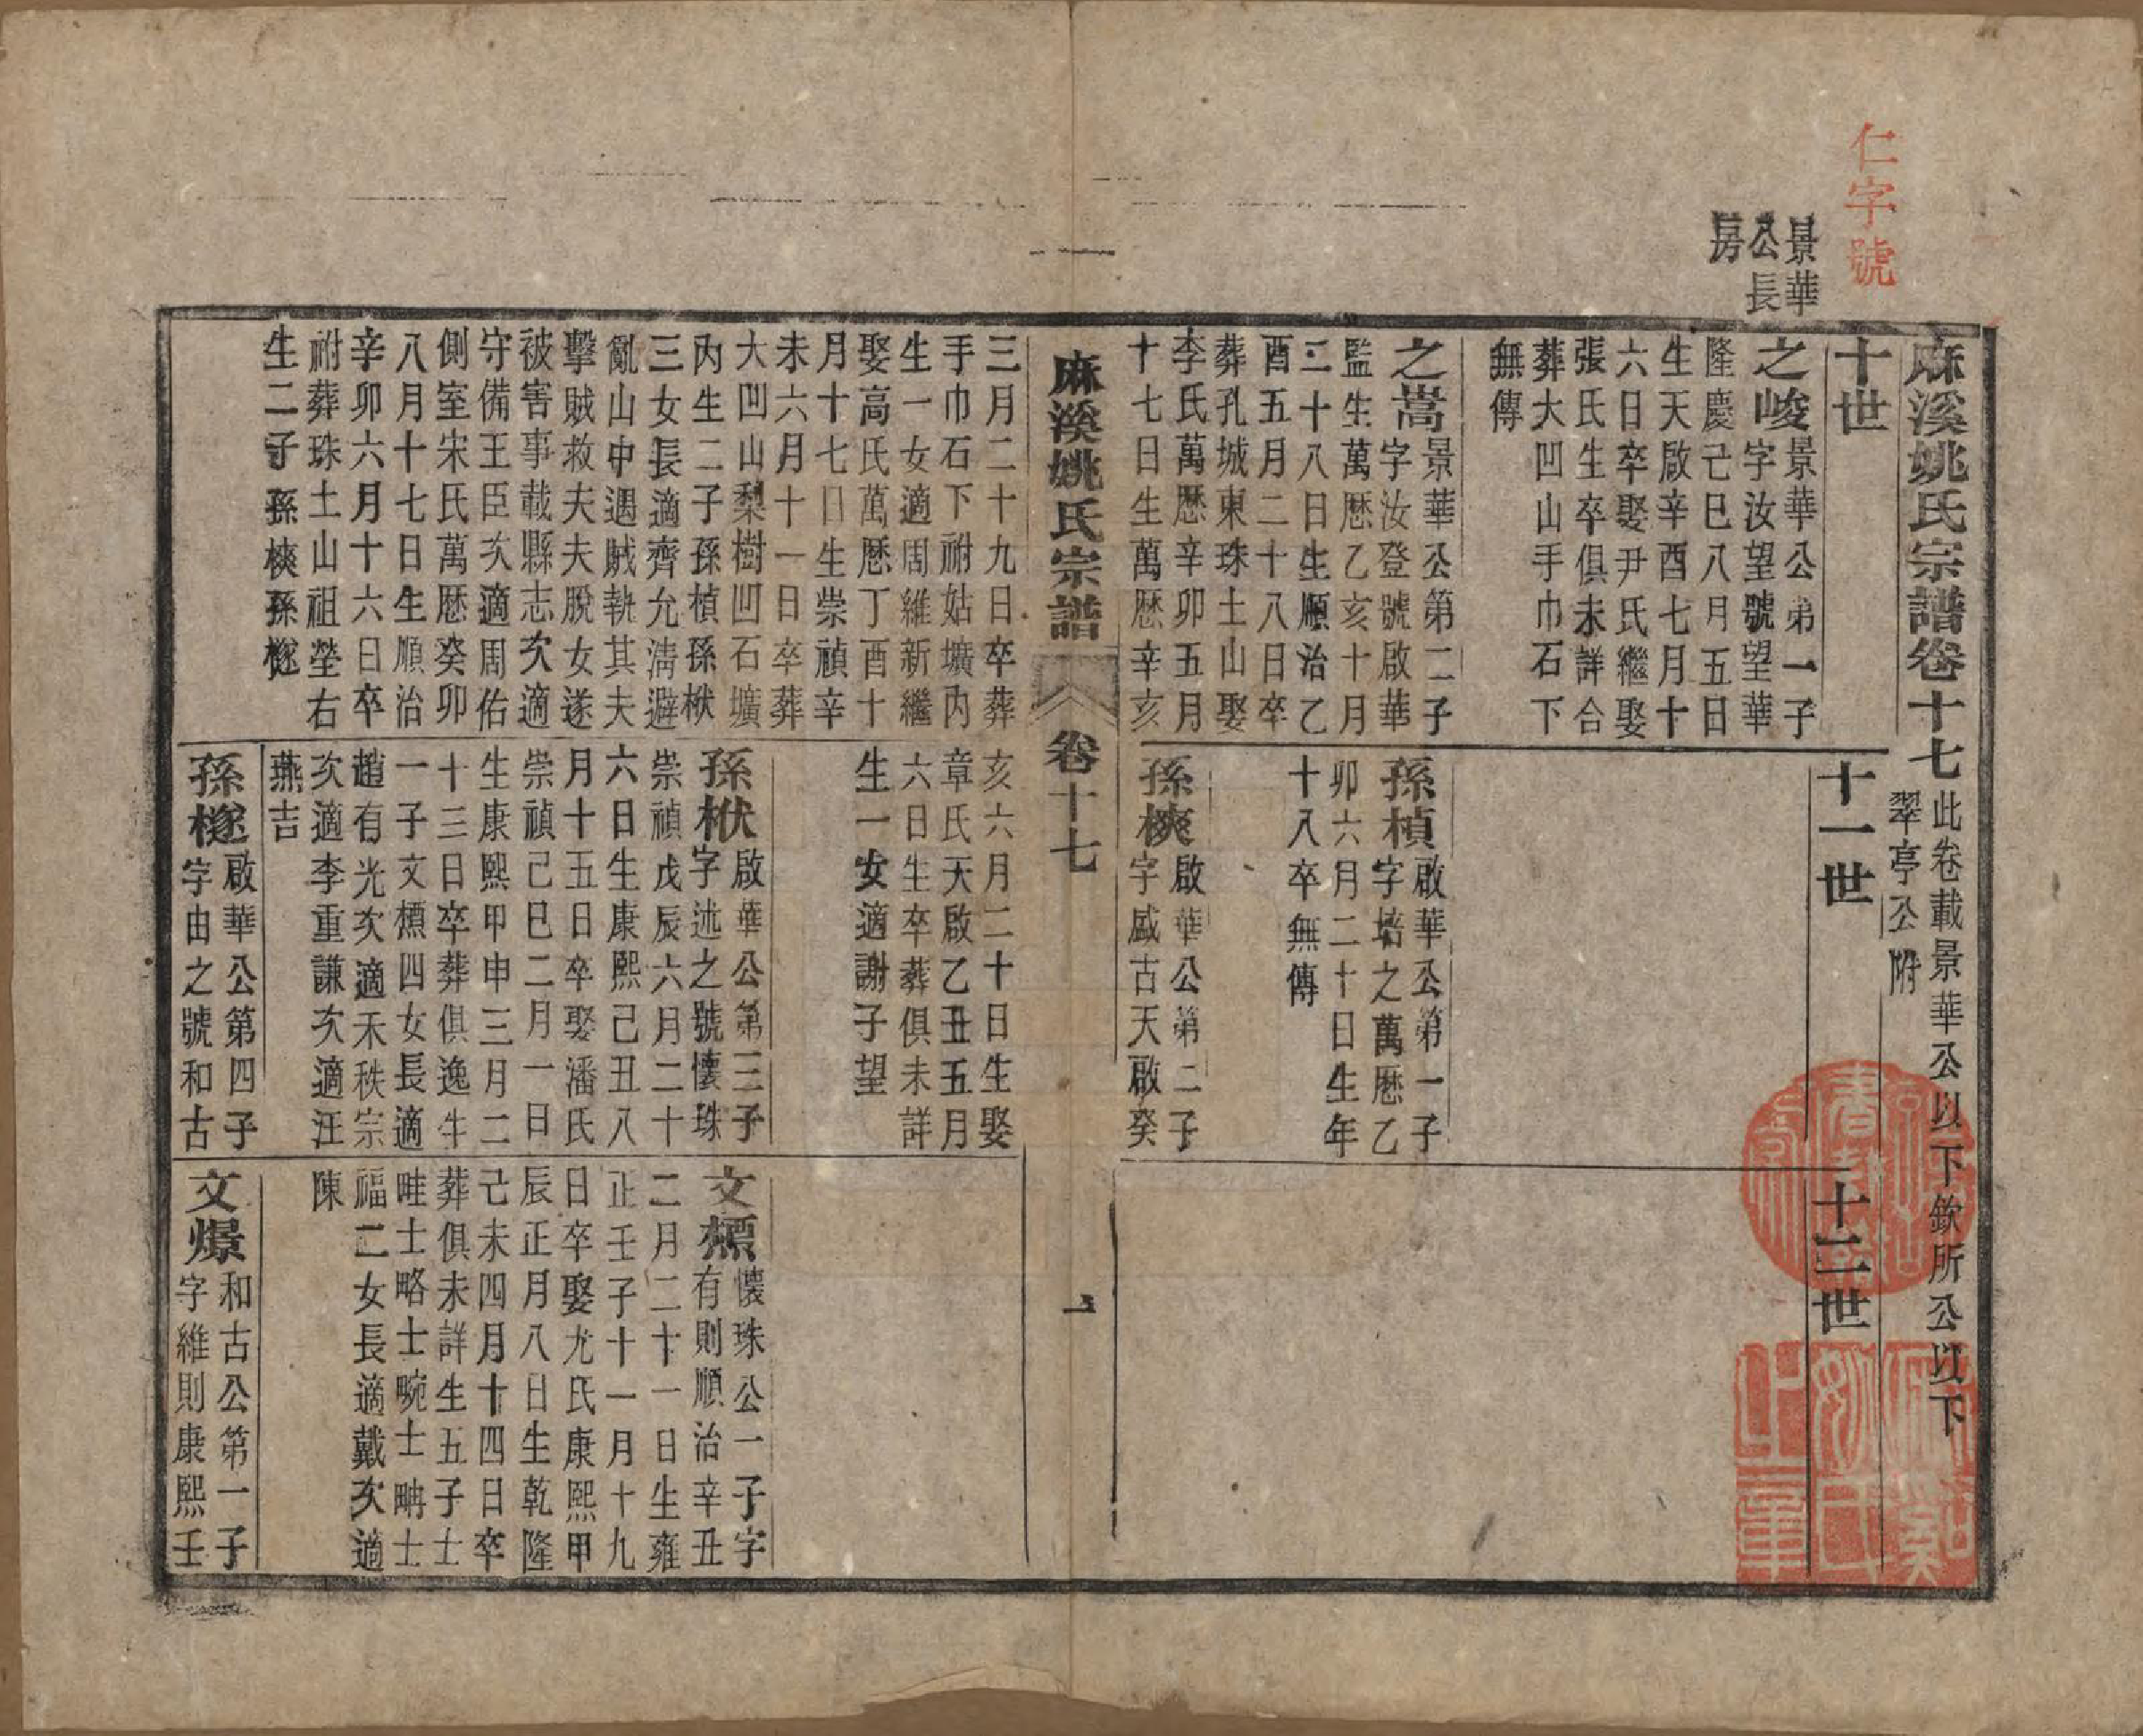 仁字號
景華
公長
房
麻溪姚氏宗譜卷十七
此卷載景華公以下欽所公以下
翠亭公附
十世
十一世
十二世
之峻
景華公第一子
字汝望號望華
隆慶己巳八月五日
生天啟辛酉七月十
六日卒娶尹氏繼娶
張氏生卒俱未詳合
葬大凹山手巾石下
無傳
之嵩
景華公第二子
字汝登號啟華
監生萬歷乙亥十月
二十八日生順治乙
酉五月二十八日卒
葬孔城東珠土山娶
李氏萬歷辛卯五月
十七日生萬歷辛亥
孫楨
啟華公第一子
字培之萬歷乙
卯六月二十日生年
十八卒無傳
孫楧
啟華公第二子
字威古天啟癸
麻溪姚氏宗譜
卷十七
一
三月二十九日卒葬
手巾石下祔姑壙內
生一女適周維新繼
娶高氏萬歷丁酉十
月十七日生崇禎辛
未六月十一日卒葬
大凹山梨樹凹石壙
內生二子孫楨孫栿
三女長適齊允淸避
亂山中遇賊執其夫
擊賊救夫夫脫女遂
被害事載縣志次適
守備王臣次適周佑
側室宋氏萬歷癸卯
八月十七日生順治
辛卯六月十六日卒
祔葬珠土山祖塋右
生二子孫楧孫檖
亥六月二十日生娶
章氏天啟乙丑五月
六日生卒葬俱未詳
生一女適謝子望
孫栿
啟華公第三子
字述之號懷珠
崇禎戊辰六月二十
六日生康熙己丑八
月十五日卒娶潘氏
崇禎己巳二月一日
生康熙甲申三月二
十三日卒葬俱逸生
一子文㯹四女長適
趙有光次適禾秩宗
次適李重謙次適汪
燕吉
孫檖
啟華公第四子
字由之號和古
文㯹
懷珠公一子字
有則順治辛丑
二月二十一日生雍
正壬子十一月十九
日卒娶尤氏康熙甲
辰正月八日生乾隆
己未四月十四日卒
葬俱未詳生五子士
畦士略士畹士畴士
福二女長適戴次適
陳
文燝
和古公第一子
字維則康熙壬